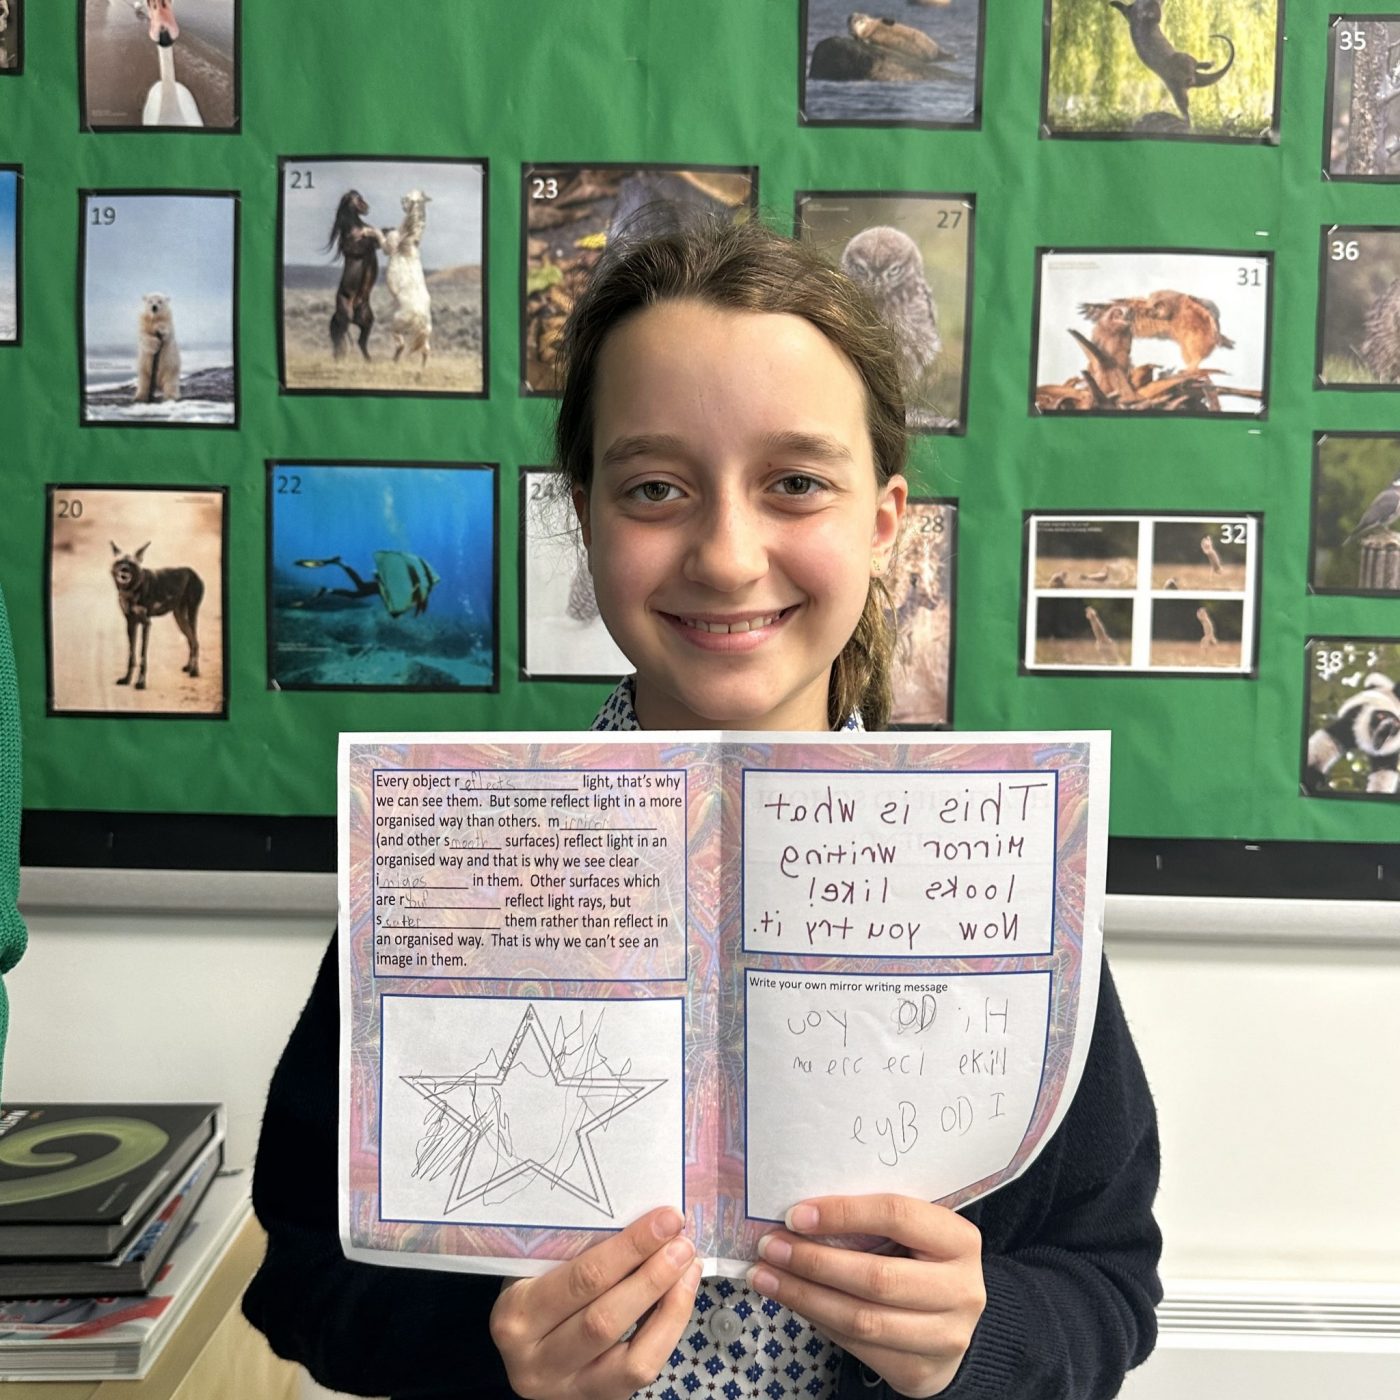 35
19
21
23
27
31
36
20
22
24
28
32
38
Every object reflects light, that's why
we can see them. But some reflect light in a more
organised way than others. mirrors
(and other smooth surfaces) reflect light in an
organised way and that is why we see clear
images in them. Other surfaces which
are r reflect light rays, but
scater them rather than reflect in
an organised way. That is why we can't see an
image in them.
This is what
mirror writing
looks like!
Now you try it.
Write your own mirror writing message
Hi DO you
like ice
I DO Bye